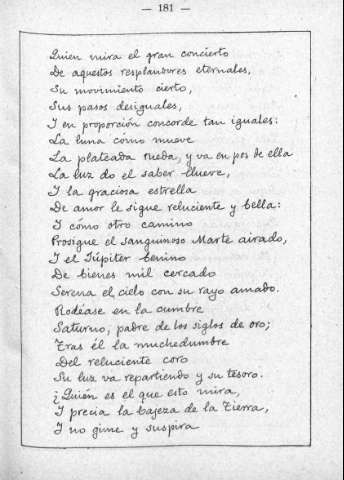 — 181 —
Quien mira el gran concierto
De aquestos resplandores eternales,
Su movimiento cierto,
Sus pasos desiguales,
Y en proporción concorde tan iguales:
La luna cómo mueve
La plateada rueda, y va en pos de ella
La luz do el saber llueve,
Y la graciosa estrella
De amor le sigue reluciente y bella:
Y cómo otro camino
Prosigue el sanguinoso Marte airado,
Y el Júpiter benino
De bienes mil cercado
Serena el cielo con su rayo amado.
Rodéase en la cumbre
Saturno, padre de los siglos de oro;
Tras él la muchedumbre
Del reluciente coro
Su luz va repartiendo y su tesoro.
¿Quién es el que esto mira,
Y precia la bajeza de la tierra,
Y no gime y suspira